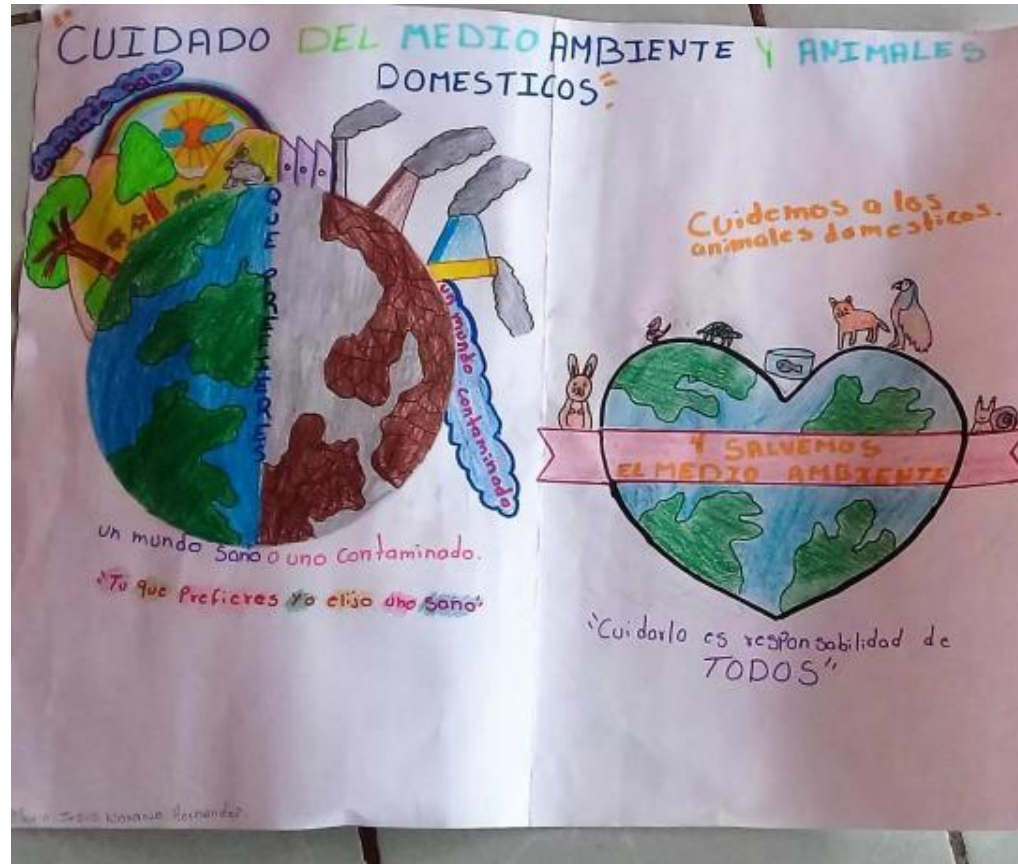 "CUIDADO DEL MEDIO AMBIENTE Y ANIMALES
DOMESTICOS"
un mundo sano
QUE PREFERIRIAS
un mundo contaminado
un mundo sano o uno contaminado.
"Tu que Prefieres Yo elijo uno sano"
Cuidemos a los
animales domesticos.
Y SALVEMOS
EL MEDIO AMBIENTE
"Cuidarlo es responsabilidad de
TODOS"
Hernandez.